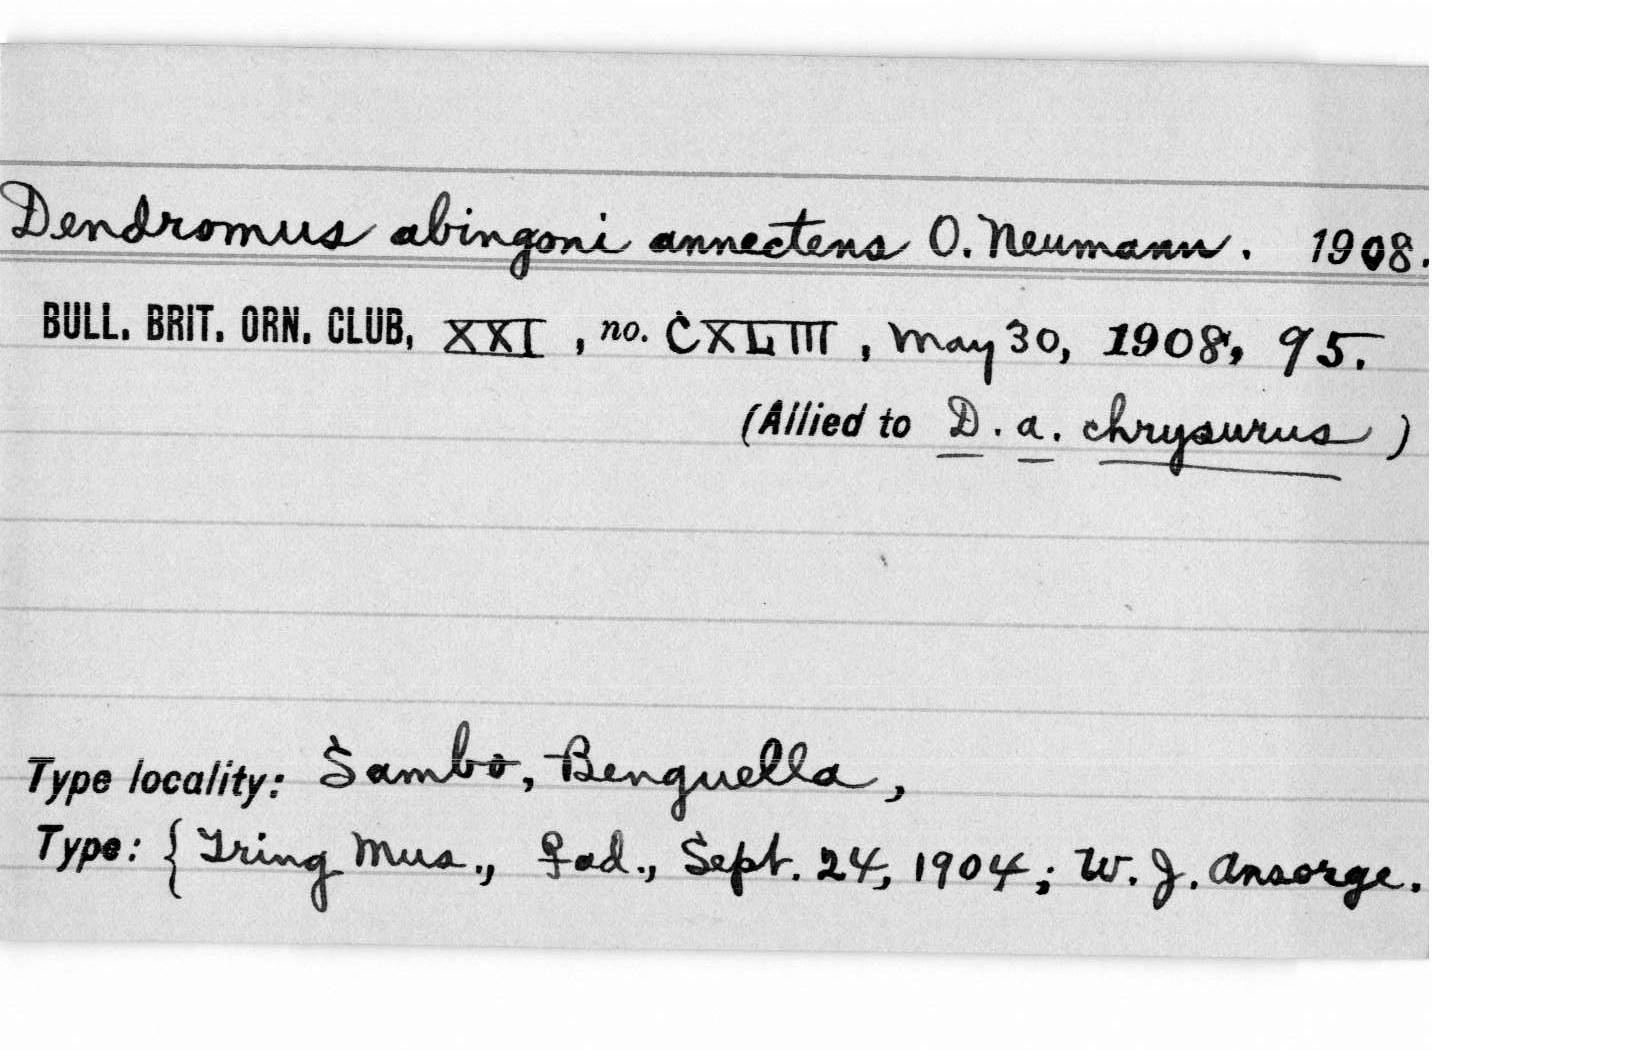 Dendromus abingoni annectens O. Neumann. 1908.
BULL. BRIT. ORN. CLUB, XXI, no. CXLIII, May 30, 1908, 95.
(Allied to D. a. chrysurus)
Type locality: Sambo, Benguella,
Type: { Tring Mus., ♀ad., Sept. 24, 1904; W. J. Ansorge.